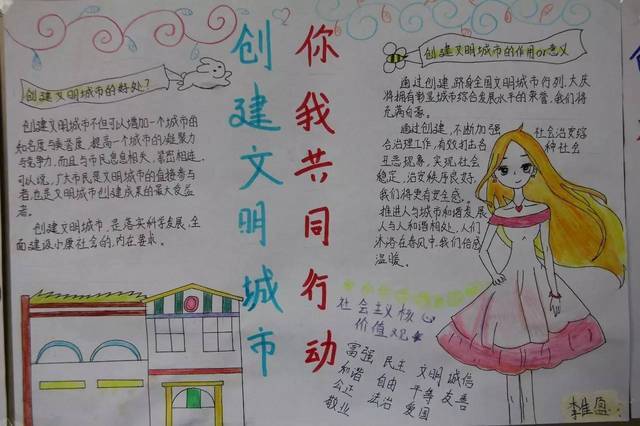 创建文明城市
你我共同行动
创建文明城市的好处?
创建文明城市不但可以增加一个城市的
知名度与美誉度,提高一个城市的凝聚力
与竞争力,而且与市民息息相关,紧密相连,
可以说,广大市民是文明城市的直接参与
者,也是文明城市创建成果的最大受益
者。
创建文明城市,是落实科学发展,全
面建设小康社会的,内在要求。
创建文明城市的作用or意义
通过创建,跻身全国文明城市行列,大庆
将拥有彰显城市综合发展水平的荣誉,我们将
充满自豪。
通过创建,不断加强社会治安综
合治理工作,有效打击各种社会
丑恶现象,实现社会
稳定,治安秩序良好,
我们将更有安全感。
推进人与城市和谐发展
人与人和谐相处,人们
沐浴在春风中,我们倍感
温暖。
社会主义核心
价值观
富强 民主 文明 诚信
和谐 自由 平等 友善
公正 法治 爱国
敬业